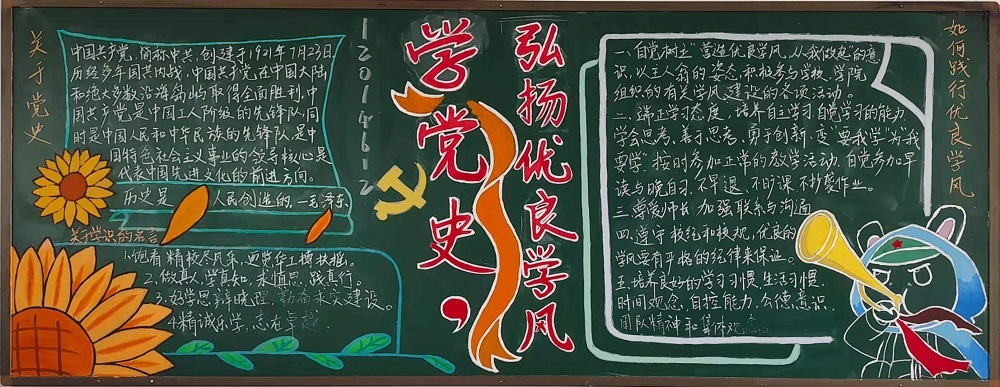 关于党史
中国共产党，简称中共，创建于1921年7月23日，
历经多年国共内战，中国共产党在中国大陆
和绝大多数沿海岛屿取得全面胜利，中
国共产党是中国工人阶级的先锋队，同
时是中国人民和中华民族的先锋队，是中
国特色社会主义事业的领导核心，是
代表中国先进文化的前进方向。
历史是 人民创造的，—毛泽东
关于学识的名言
2.做真人，学真知，求慎思，践真行。
3.好学思辩晓理，勤奋求实建设。
4.精诚乐学，志在卓越
12014612
学党史，
弘扬优良学风
一、自觉树立"营造优良学风，从我做起"的意
识，以主人翁的姿态积极参与学校、学院
组织的有关学风建设的各项活动。
二、端正学习态度，培养自主学习自觉学习的能力
学会思考，善于思考，勇于创新，变"要我学"为"我
要学"，按时参加正常的教学活动，自觉参加早
读与晚自习，不早退、不旷课不抄袭作业。
三、尊爱师长，加强联系与沟通
四、遵守校纪和校规，优良的
学风要有严格的纪律来保证。
五、培养良好的学习习惯，生活习惯
时间观念，自控能力，公德意识，
团队精神和集体观念。
如何践行优良学风